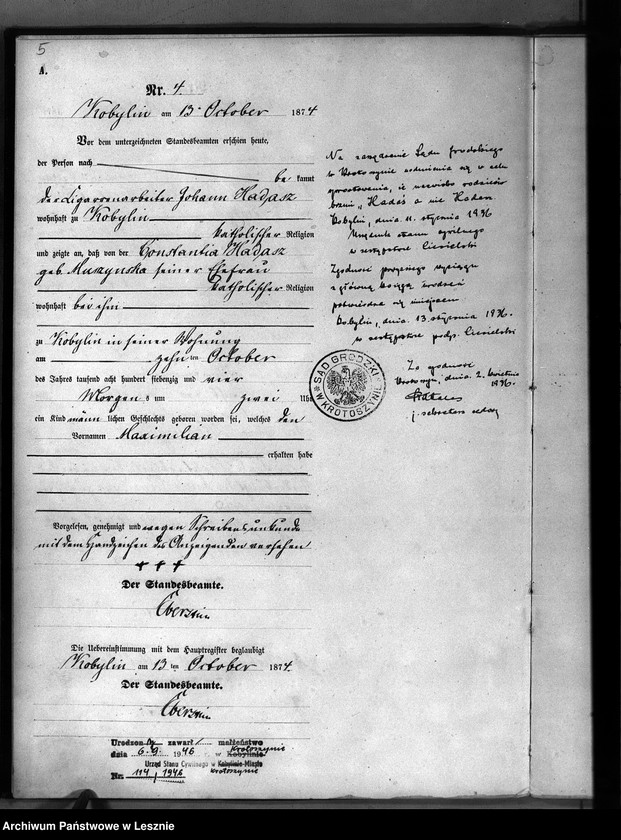 5
A.
Nr. 4.
Kobylin am 13 October 1874
Vor dem unterzeichneten Standesbeamten erschien heute,
der Person nach
be kannt
der Cigarrenarbeiter Johann Hadasz
wohnhaft zu Kobylin
katholischer Religion
und zeigte an, daß von der Constantia Hadasz
geb. Muszynska seiner Ehefrau
katholischer Religion
wohnhaft bei ihm
zu Kobylin in seiner Wohnung
am zehn ten October
des Jahres tausend acht hundert siebenzig und vier
Morgens um zwei Uhr
ein Kind männ lichen Geschlechts geboren worden sei, welches den
Vornamen Maximilian
erhalten habe
Vorgelesen, genehmigt und wegen Schreibensunkunde
mit dem Handzeichen des Anzeigenden versehen
+ + +
Der Standesbeamte.
Die Uebereinstimmung mit dem Hauptregister beglaubigt
Kobylin am 13 ten October 1874.
Der Standesbeamte.
Urodzon zawarł małżeństwo
dnia 6.9. 1946 w Kobylinie Krotoszynie
Urząd Stanu Cywilnego w Kobylinie-Miasto
Krotoszynie
Nr. 114 / 1946
Na zarządzenie Sądu Grodzkiego
w Krotoszynie
sprostowania, że nazwisko rodziców
brzmi "Hadaś a nie Hadasz
Kobylin, dnia 11. stycznia 1936
Urzędnik stanu cywilnego
w zastępstwie Ciesielski
Zgodność powyższego wypisu
z główną księgą urodzeń
potwierdza się niniejszem
Kobylin, dnia 13 stycznia 1936.
w zastępstwie podp. Ciesielski
SĄD GRODZKI
W KROTOSZYNIE
Za zgodność
dnia 2. kwietnia
1936.
Archiwum Państwowe w Lesznie